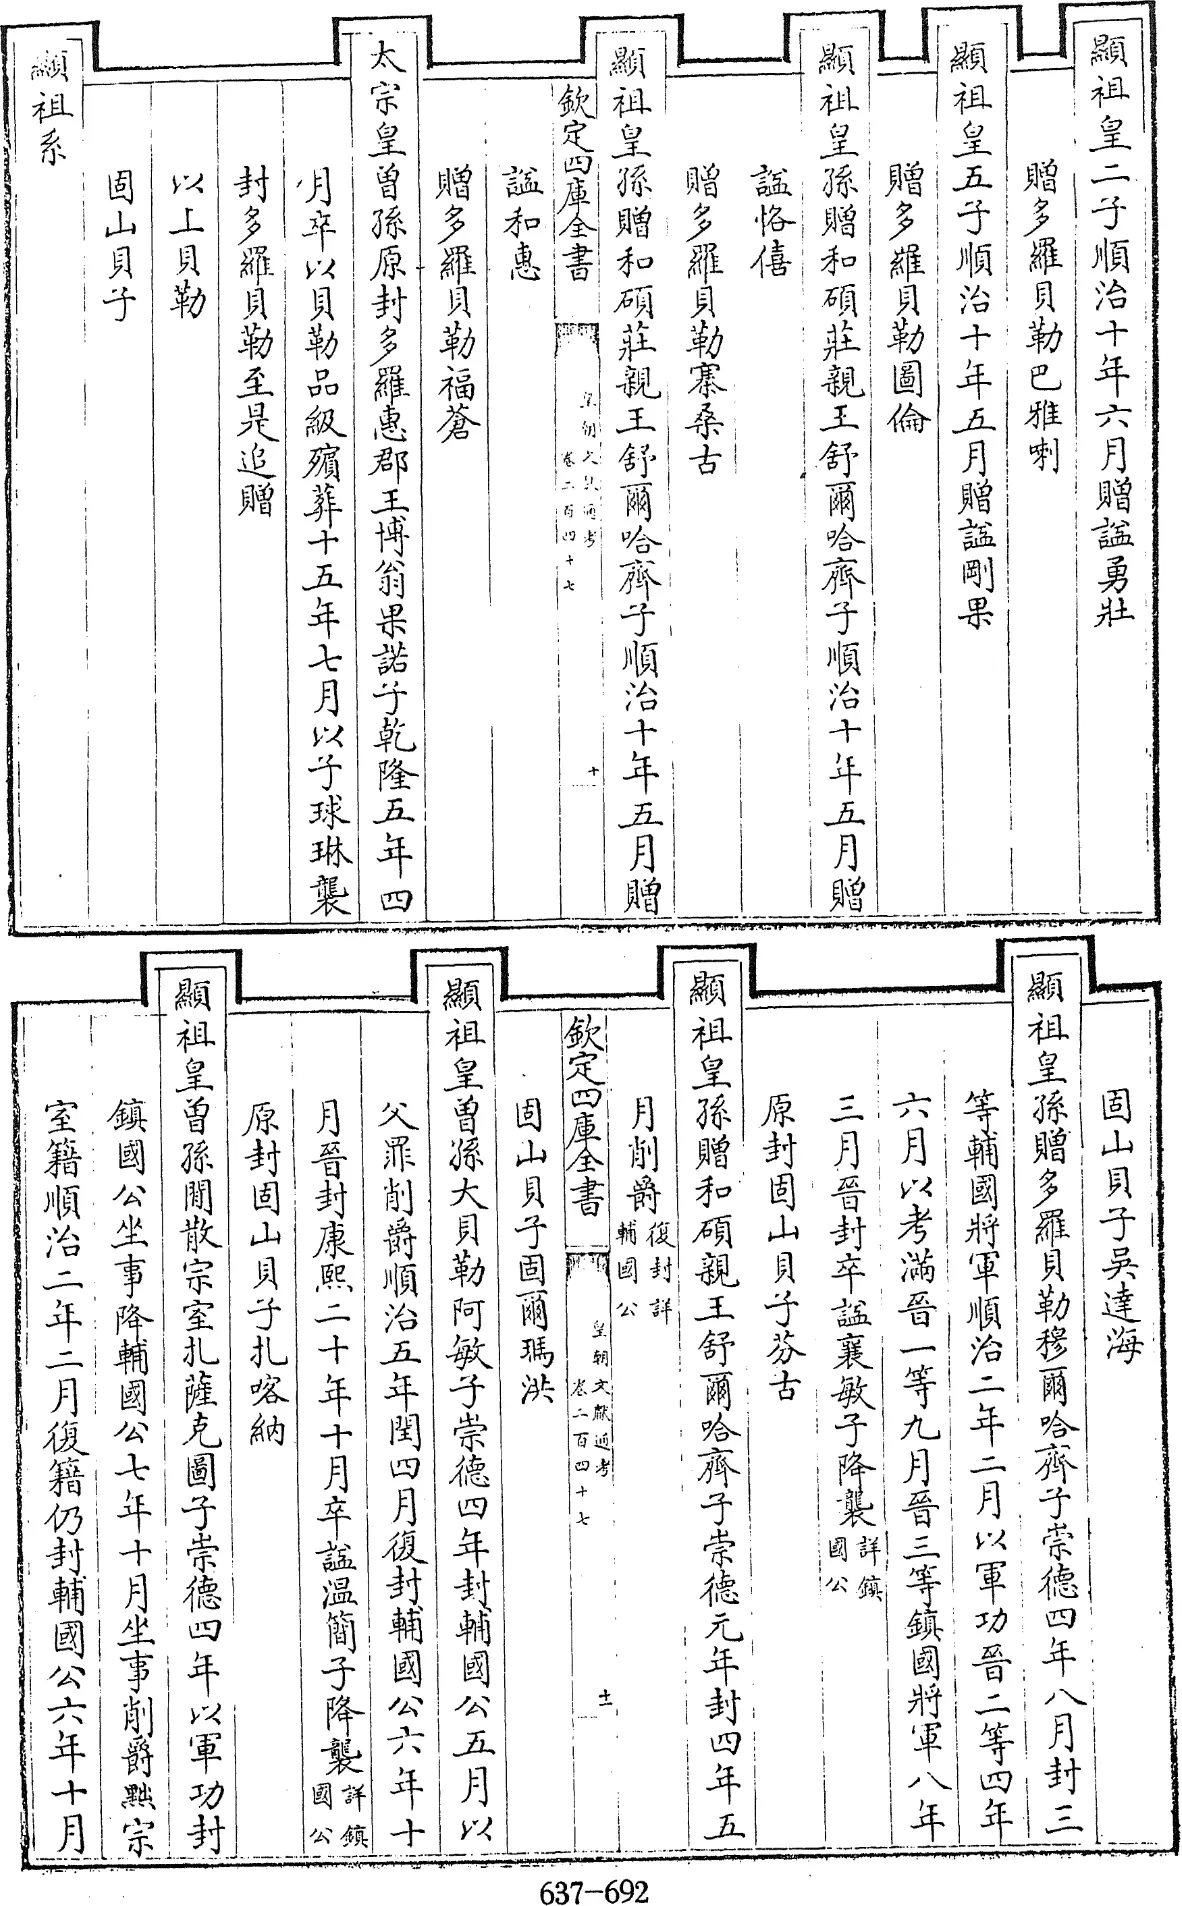 顯祖皇二子順治十年六月贈諡勇壯
贈多羅貝勒巴雅喇
顯祖皇五子順治十年五月贈諡剛果
贈多羅貝勒圖倫
顯祖皇孫贈和碩莊親王舒爾哈齊子順治十年五月贈
諡恪僖
贈多羅貝勒寨桑古
顯祖皇孫贈和碩莊親王舒爾哈齊子順治十年五月贈
欽定四庫全書
皇朝文獻通考
卷二百四十七
十
諡和惠
贈多羅貝勒福蒼
太宗皇曾孫原封多羅惠郡王博翁果諾子乾隆五年四
月卒以貝勒品級殯葬十五年七月以子球琳襲
封多羅貝勒至是追贈
以上貝勒
固山貝子
顯祖系
固山貝子吳達海
顯祖皇孫贈多羅貝勒穆爾哈齊子崇德四年八月封三
等輔國將軍順治二年二月以軍功晉二等四年
六月以考滿晉一等九月晉三等鎮國將軍八年
三月晉封卒諡襄敏子降襲詳鎮國公
原封固山貝子芬古
顯祖皇孫贈和碩親王舒爾哈齊子崇德元年封四年五
月削爵復封詳輔國公
欽定四庫全書
皇朝文獻通考
卷二百四十七
十一
固山貝子固爾瑪洪
顯祖皇曾孫大貝勒阿敏子崇德四年封輔國公五月以
父罪削爵順治五年閏四月復封輔國公六年十
月晉封康熙二十年十月卒諡溫簡子降襲詳鎮國公
原封固山貝子扎喀納
顯祖皇曾孫閒散宗室扎薩克圖子崇德四年以軍功封
鎮國公坐事降輔國公七年十月坐事削爵黜宗
室籍順治二年二月復籍仍封輔國公六年十月
637-692